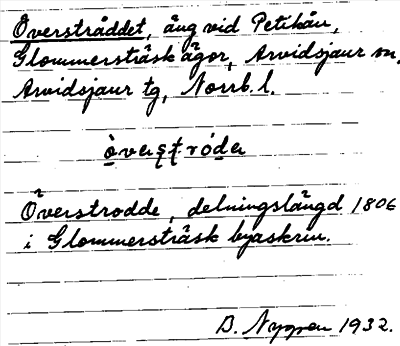 Överströddet, äng vid Petikån,
Glommersträsk ägor, Arvidsjaur sn,
Arvidsjaur tg, Norrb. l.
òvaʂʈródɑ
Överstrodde, delningslängd 1806
i Glommersträsk byaskrin.
B. Nygren 1932.